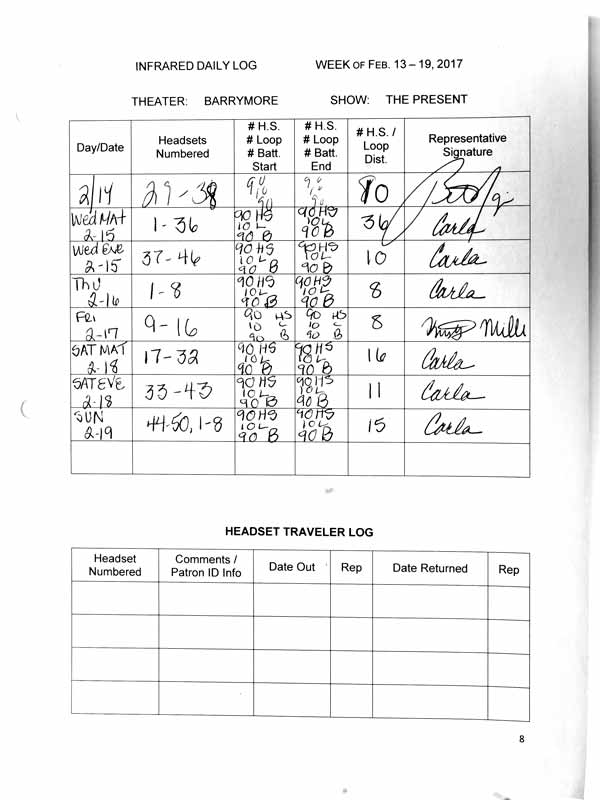 INFRARED DAILY LOG WEEK OF FEB. 13 – 19, 2017
THEATER: BARRYMORE SHOW: THE PRESENT
Day/Date Headsets Numbered # H.S. # Loop # Batt. Start # H.S. # Loop # Batt. End # H.S. / Loop Dist. Representative Signature
2/14 29-38 90 10 90 90 10 90 10
Wed MAT 2-15 1-36 90 HS 10 L 90 B 90 HS 10 L 90 B 36 Carla
Wed EVE 2-15 37-46 90 HS 10 L 90 B 90 HS 10 L 90 B 10 Carla
THU 2-16 1-8 90 HS 10 L 90 B 90 HS 10 L 90 B 8 Carla
FRI 2-17 9-16 90 HS 10 L 90 B 90 HS 10 L 90 B 8
SAT MAT 2-18 17-32 90 HS 10 L 90 B 90 HS 10 L 90 B 16 Carla
SAT EVE 2-18 33-43 90 HS 10 L 90 B 90 HS 10 L 90 B 11 Carla
SUN 2-19 44-50, 1-8 90 HS 10 L 90 B 90 HS 10 L 90 B 15 Carla
HEADSET TRAVELER LOG
Headset Numbered Comments / Patron ID Info Date Out Rep Date Returned Rep
8